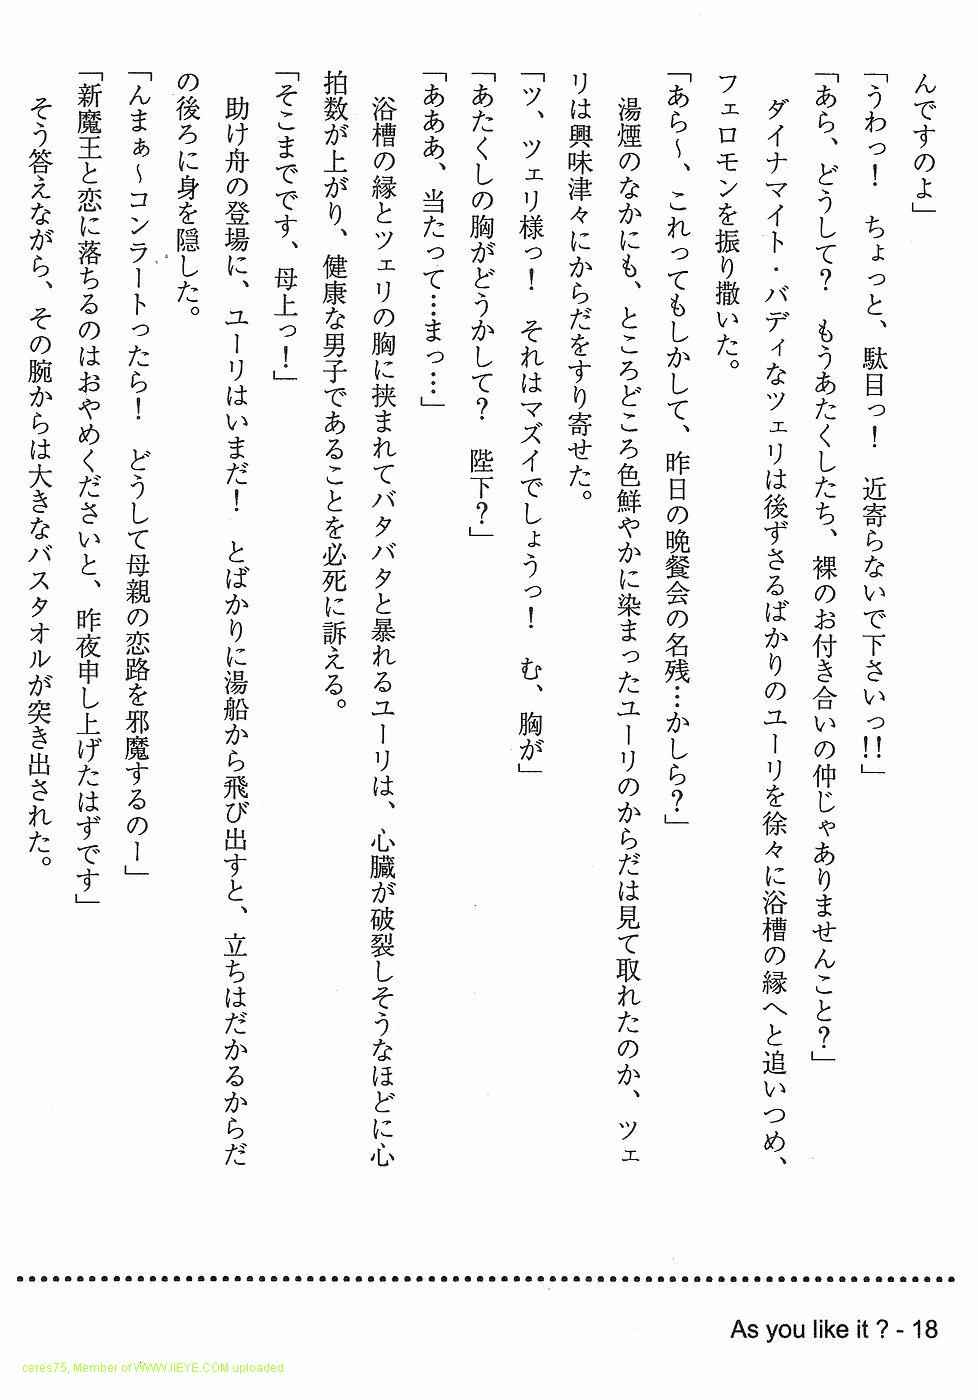 んですのよ」
「うわっ！　ちょっと、駄目っ！　近寄らないで下さいっ!!」
「あら、どうして？　もうあたくしたち、裸のお付き合いの仲じゃありませんこと？」
　ダイナマイト・バディなツェリは後ずさるばかりのユーリを徐々に浴槽の縁へと追いつめ、
フェロモンを振り撒いた。
「あら～、これってもしかして、昨日の晩餐会の名残…かしら？」
　湯煙のなかにも、ところどころ色鮮やかに染まったユーリのからだは見て取れたのか、ツェ
リは興味津々にからだをすり寄せた。
「ツ、ツェリ様っ！　それはマズイでしょうっ！　む、胸が」
「あたくしの胸がどうかして？　陛下？」
「あああ、当たって…まっ…」
　浴槽の縁とツェリの胸に挟まれてバタバタと暴れるユーリは、心臓が破裂しそうなほどに心
拍数が上がり、健康な男子であることを必死に訴える。
「そこまでです、母上っ！」
　助け舟の登場に、ユーリはいまだ！　とばかりに湯船から飛び出すと、立ちはだかるからだ
の後ろに身を隠した。
「んまぁ～コンラートったら！　どうして母親の恋路を邪魔するのー」
「新魔王と恋に落ちるのはおやめくださいと、昨夜申し上げたはずです」
　そう答えながら、その腕からは大きなバスタオルが突き出された。
As you like it ? - 18
ceres75, Member of WWW.IIEYE.COM uploaded